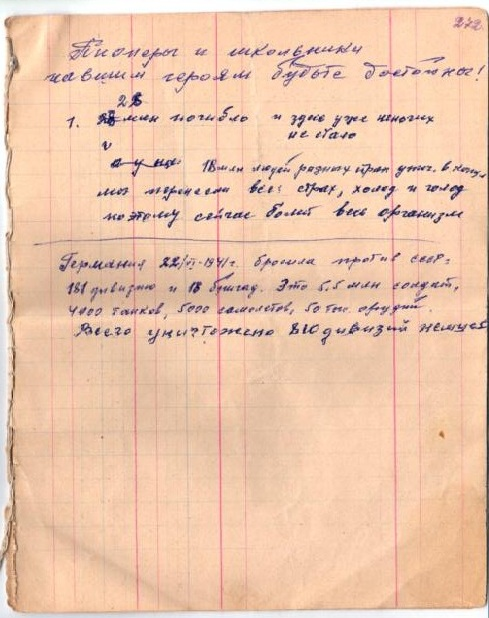 272.
Пионеры и школьники
павшим героям будьте достойны!
28
1. млн погибло и здесь уже немногих
не стало
18 млн людей разных стран унич. в конц.
мы перенесли все: страх, холод и голод
поэтому сейчас болит весь организм
Германия 22/VI-1941г. бросила против СССР:
181 дивизию и 18 бригад. Это 5,5 млн солдат,
4400 танков, 5000 самолетов, 50 тыс. орудий.
Всего уничтожено 810 дивизий немцев